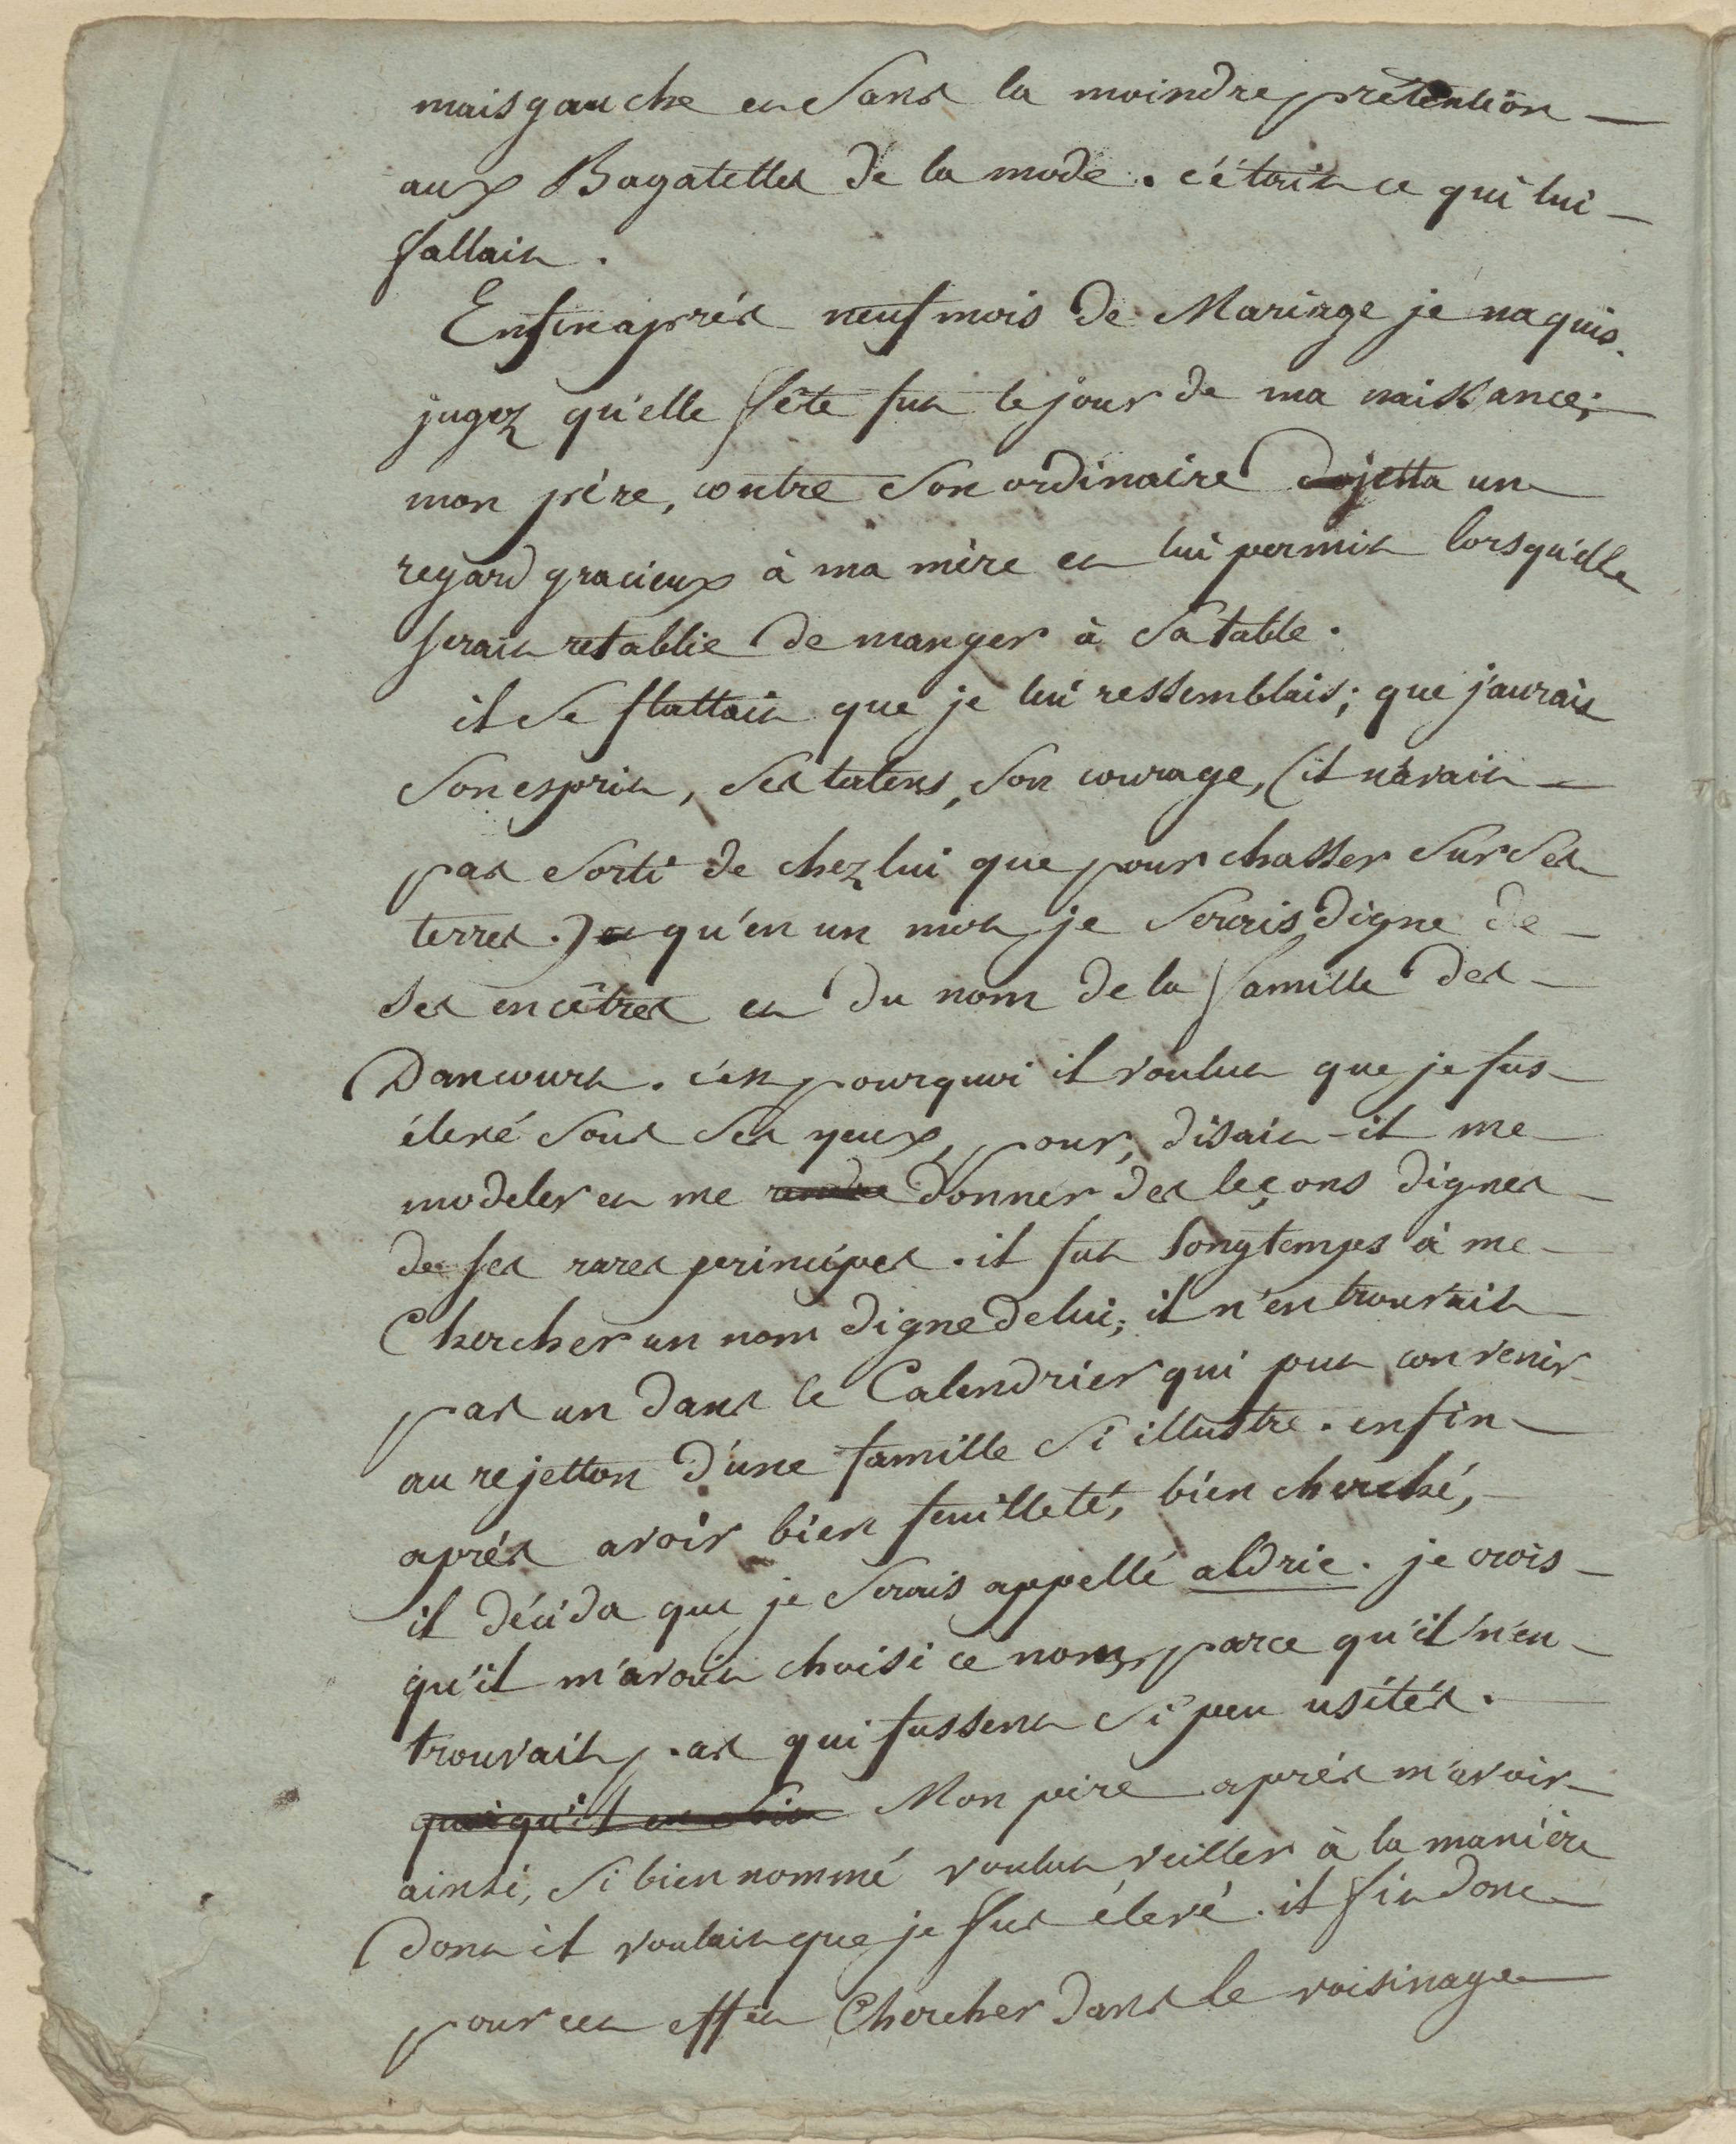 mais gauche et sans la moindre prétention —
aux Bagatelles de la mode. c'étoit ce qui lui —
fallait.
Enfin après neuf mois de Mariage je naquis.
jugez qu'elle fête fut le jour de ma naissance;
mon père, contre son ordinaire jetta un
regard gracieux à ma mère et lui permit lorsqu'elle
serait retablie de manger à sa table.
il se flattait que je lui ressemblais; que j'aurais
son esprit, ses talens, son courage, (il n'avait —
pas sorti de chez lui que pour chasser sur ses
terres.) et qu'en un mot je serais digne de —
ses encêtres et du nom de la famille des —
Dancourt. c'est pourquoi il voulut que je fus —
élevé sous ses yeux, pour, disait-il me —
modeler et me rendre donner des leçons dignes —
de ses rares principes. il fut longtemps à me —
Chercher un nom digne de lui; il n'en trouvait —
pas un dans le Calendrier qui put convenir
au rejetton d'une famille si illustre. enfin —
après avoir bien feuilleté, bien cherché, —
il décida que je serais appellé aldric. je crois —
qu'il m'avait choisi ce nom, parce qu'il n'en —
trouvait pas qui fussent si peu usités. —
quoiqu'il en soit Mon père après m'avoir —
ainsi, si bien nommé voulut veiller à la manière
dont il voulait que je fus élevé. il fit donc —
pour cet effet Chercher dans le voisinage —